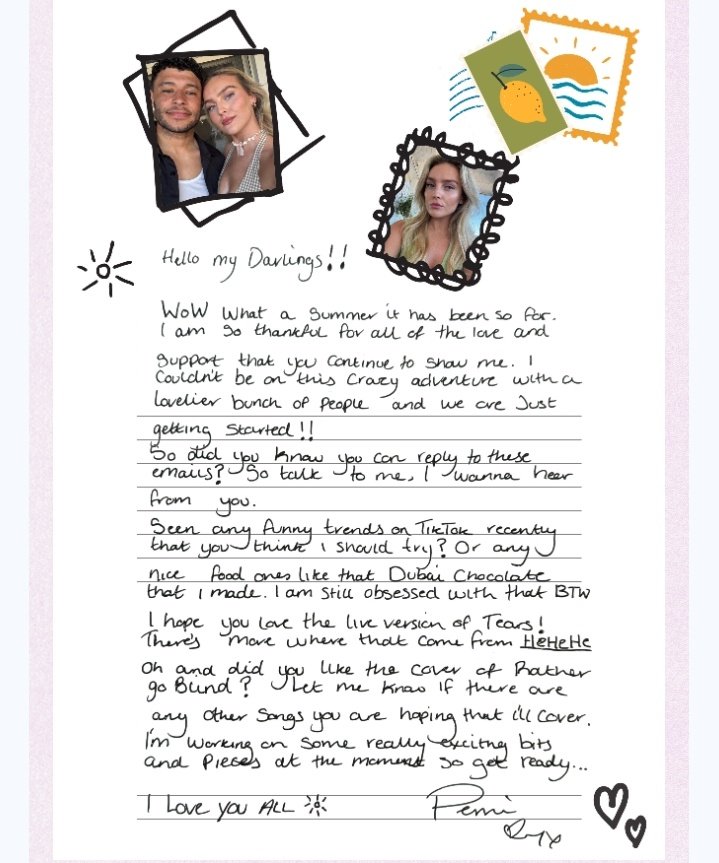 Hello my Darlings!!
WOW What a Summer it has been so far.
I am so thankful for all of the love and
Support that you continue to show me. I
Couldn't be on this crazy adventure with a
lovelier bunch of people and we are Just
getting Started!!
So did you know you can reply to these
emails? So talk to me, I wanna hear
from you.
Seen any funny trends on TikTok recently
that you think I should try? Or any
nice food ones like that Dubai Chocolate
that I made. I am still obsessed with that BTW
I hope you love the live version of Tears!
There's more where that came from HeHeHe
Oh and did you like the cover of Rather
go Blind? Let me know if there are
any other songs you are hoping that i'll cover.
I'm working on some really exciting bits
and Pieces at the moment so get ready...
I Love you ALL
Perrie